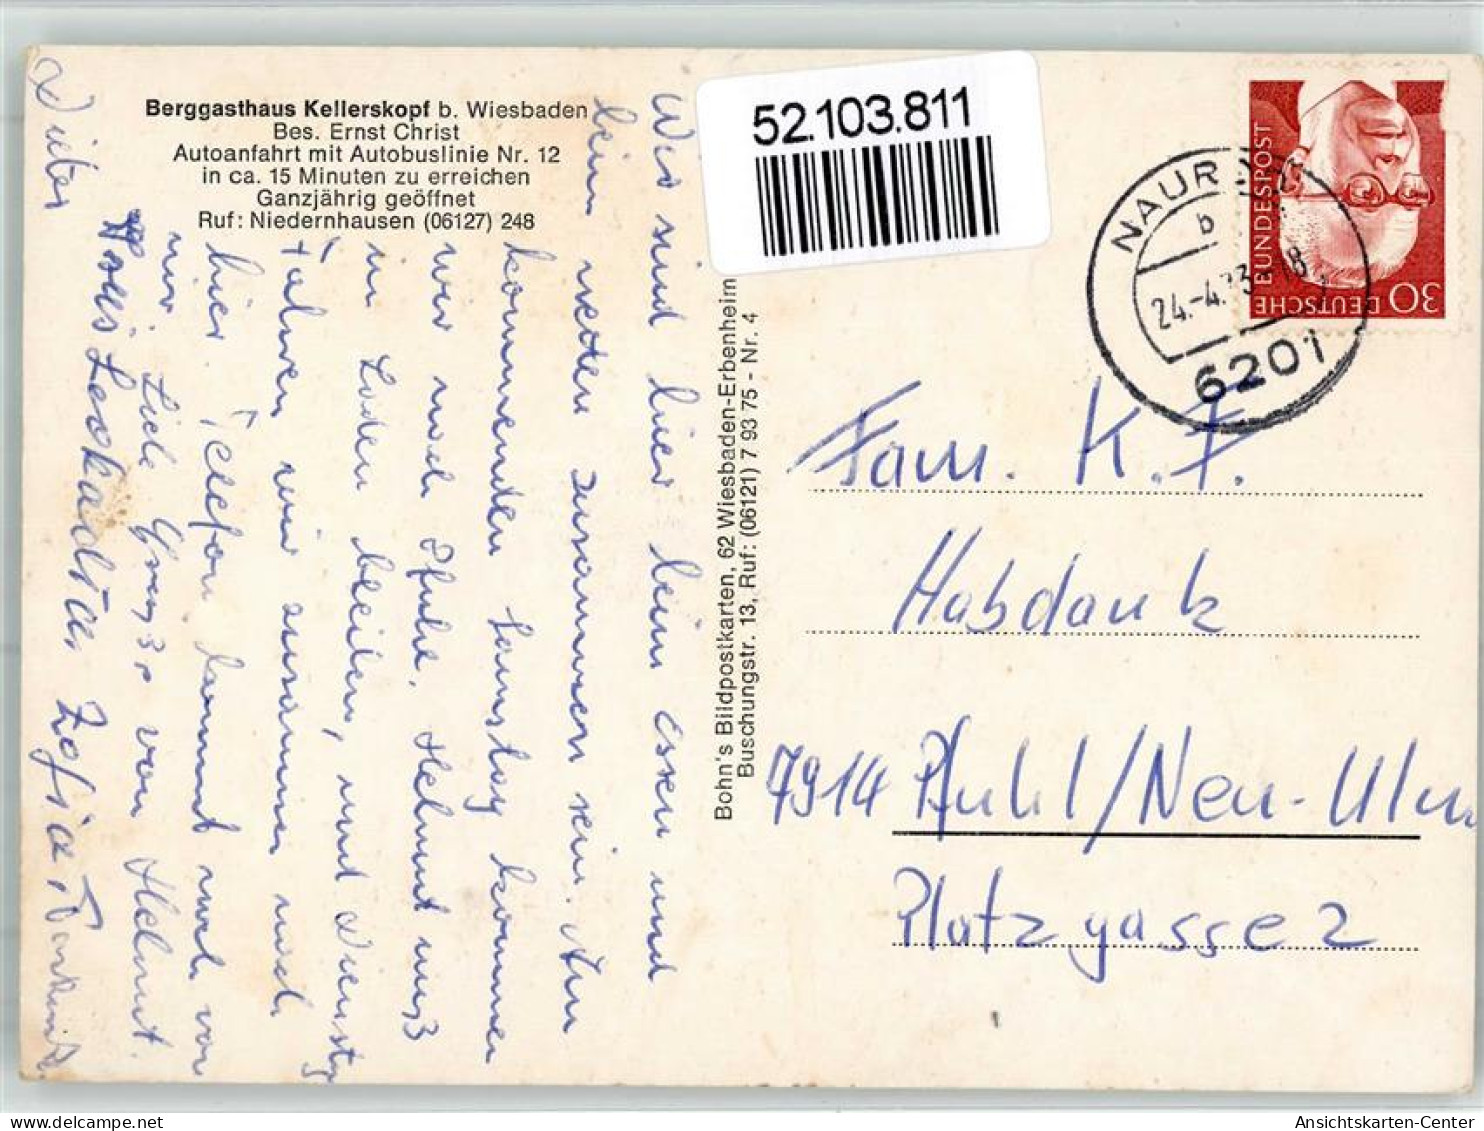 Berggasthaus Kellerskopf b. Wiesbaden
Bes. Ernst Christ
Autoanfahrt mit Autobuslinie Nr. 12
in ca. 15 Minuten zu erreichen
Ganzjährig geöffnet
Ruf: Niedernhausen (06127) 248
Wir sind hier beim essen und
beim zusammen sein. Am
kommenden Samstag kommen
wir nach Pfuhl. Helmut muß
in bleiben, und Dienstag
fahren wir zusammen nach
hier. Telefon kommt noch von
mir. Liebe Grüße von Helmut.
Leokadia Zofia
Dieter
Bohn's Bildpostkarten, 62 Wiesbaden-Erbenheim
Buschungstr. 13, Ruf: (06121) 7 93 75 - Nr. 4
52.103.811
DEUTSCHE BUNDESPOST
30
b
24.-4.73
6201
Fam. K. F.
Habdank
7914 Pfuhl/Neu-Ulm
Platzgasse 2
Ansichtskarten-Center